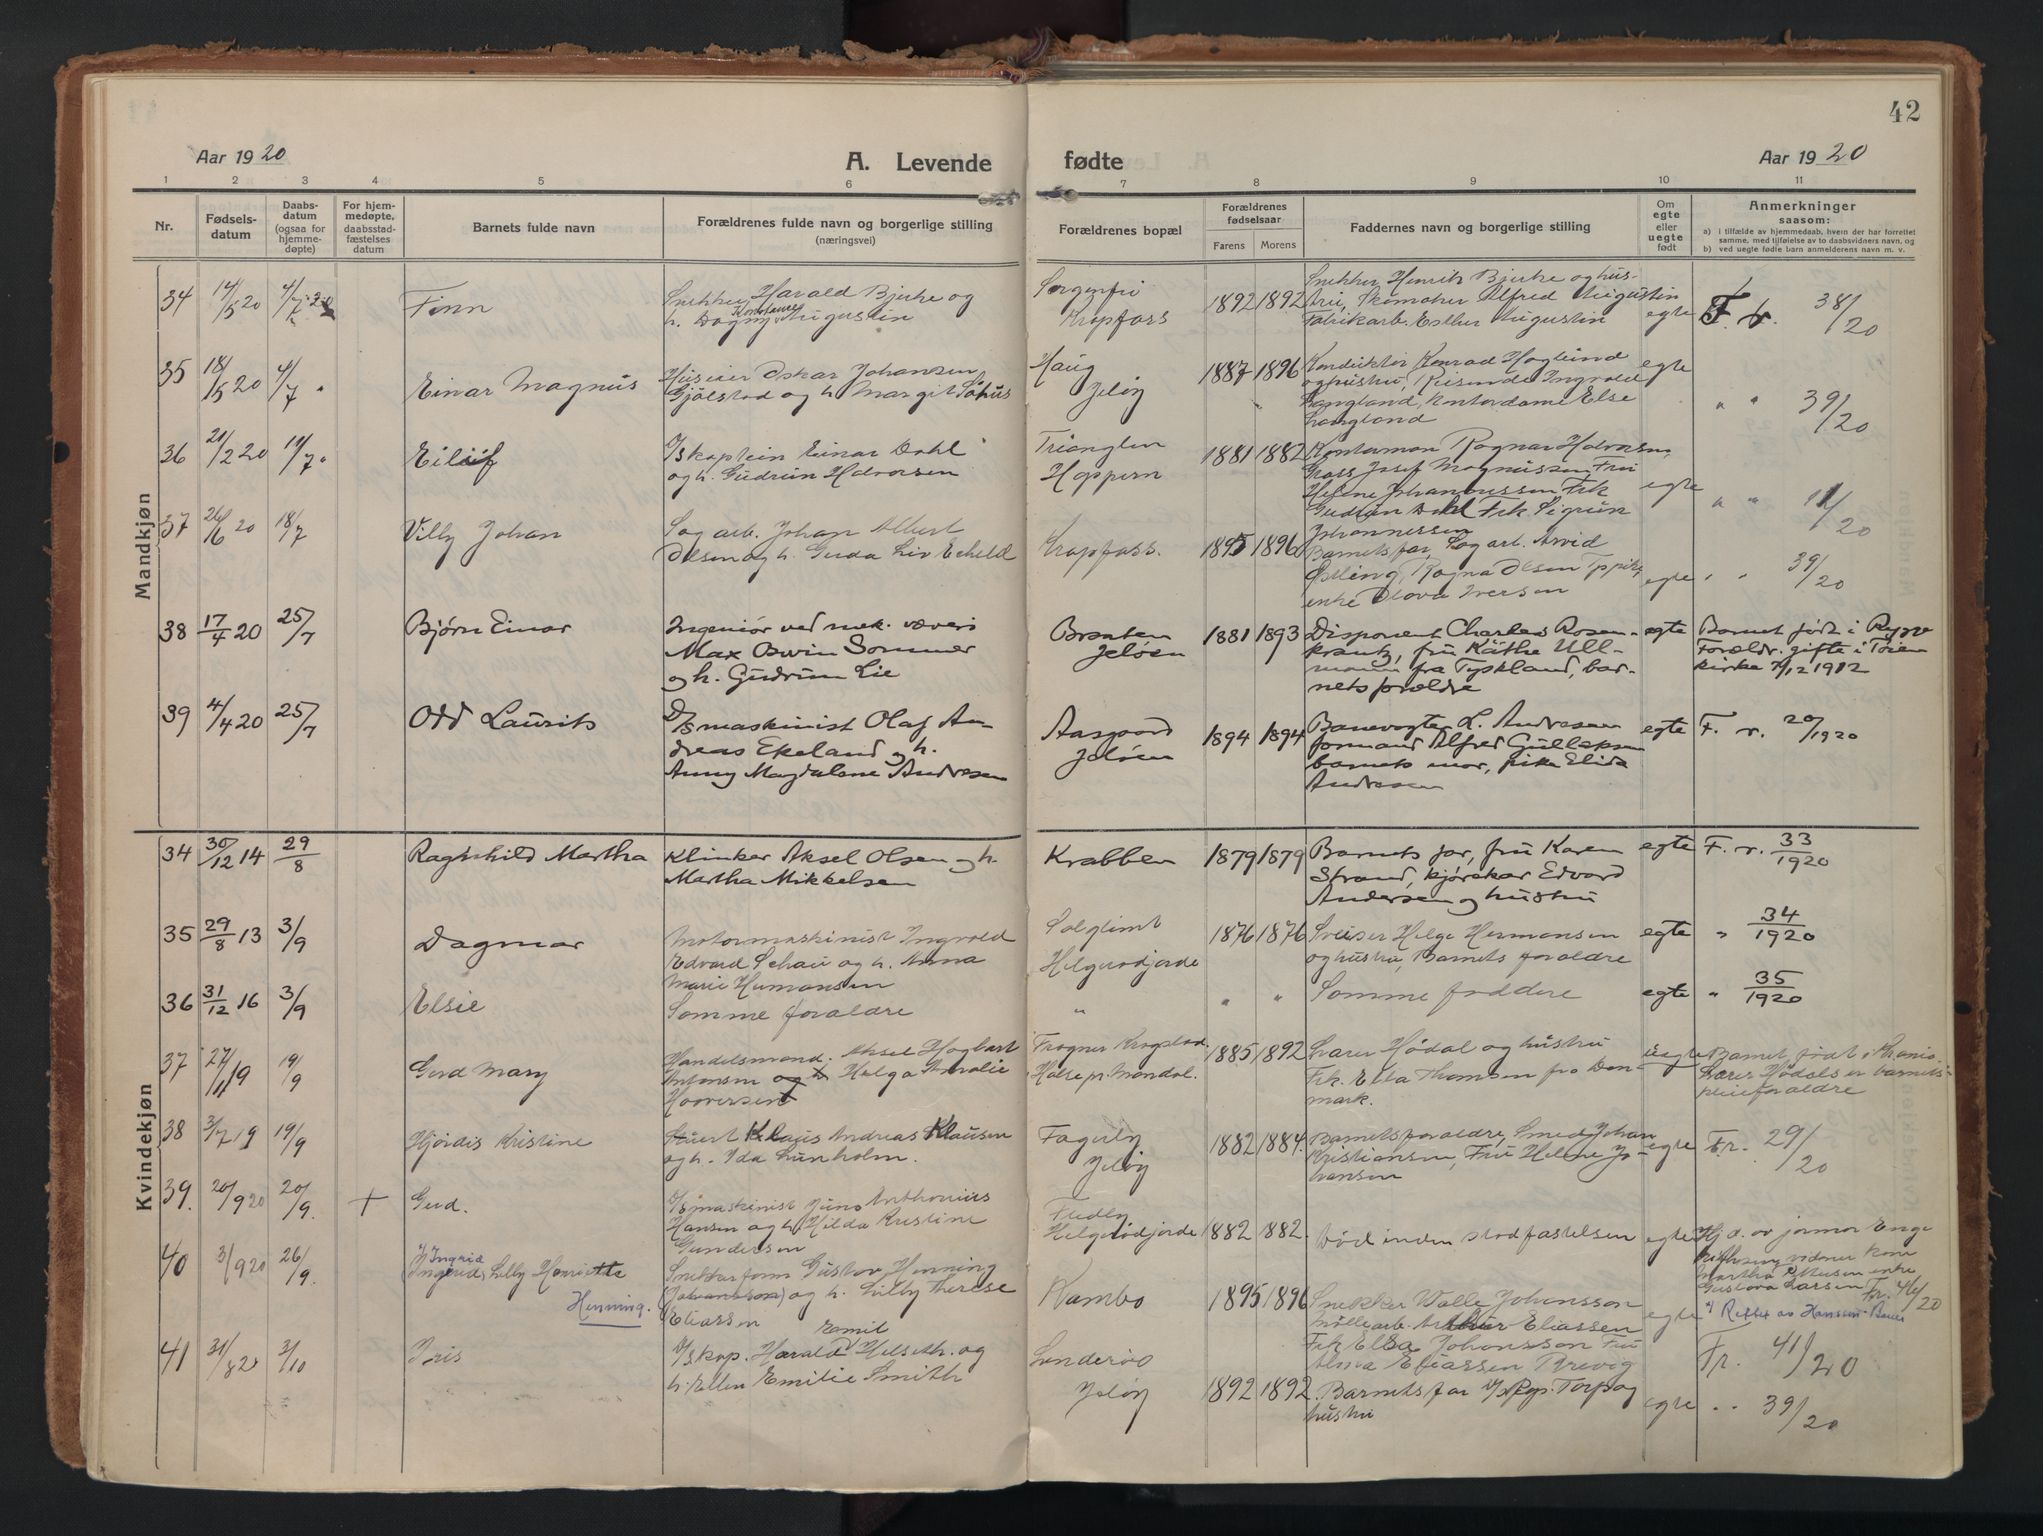 42
Aar 1920
A. Levende fødte
Aar 1920
1 2 3 4 5 6 7 8 9 10 11
Nr.
Fødselsdatum
Daabsdatum (ogsaa for hjemmedøpte)
For hjemmedøpte, daabsstadfæstelses datum
Barnets fulde navn
Forældrenes fulde navn og borgerlige stilling (næringsvei)
Forældrenes bopæl
Forældrenes fødselsaar
Farens Morens
Faddernes navn og borgerlige stilling
Om egte eller uegte født
Anmerkninger saasom:
a) i tilfælde av hjemmedaab, hvem der har forrettet samme, med tilføielse av to daabsvidners navn, og
b) ved uegte fødte barn anmelderens navn m. v.
Mandkjøn
34 14/5 20 4/7 20 Finn
Snekker Harald Bjerke og
h. Dagny Konstance Augustin
Sorgenfri
Krapfoss
1892 1892
Snekker Henrik Bjerke og hus-
tru, Skimaker Alfred Augustin
Fabrikarb. Esther Augustin
egte F. r. 38/20
35 18/5 20 4/7 " Einar Magnus
Huseier Oskar Johansen
Gjølstad og h. Margit
Haug
Jeløy
1887 1896
Konduktør Konrad Hoglund
og hustru, Reisende Ingvald
Langland, kontordame Else
Langland
egte " " 39/20
36 21/2 20 11/7 " Eiliif
I/s kaptein Einar Dahl
og h. Gudrun Halvorsen
Trianglen
Hoppern
1881 1882
Kontorman Ragnar Halvorsen,
Josef Magnussen Fru
Helene Johannessen Frk
Gudrun Dahl Frk. Sigrun
Johannessen
egte " " 11/20
37 26/6 20 18/7 Villy Johan
Sagarb. Johan Albert
Olsen og h. Gerda Liv Echeld
Krapfoss.
1895 1896
Barnets far, Sagarb. Arvid
Østling, Ragna Olsen
enke Olava Iversen
egte " " 39/20
38 17/4 20 25/7 Bjørn Einar
Ingeniör ved mek. væveri
Max Erwin Sommer
og h. Gudrun Lie
Braaten
Jeløen
1881 1893
Disponent Charles Rosen-
krantz, fru Käthe Ull-
mann fra Tyskland, bar-
nets forældre
egte
Barnet født i Rygge
Forældr. gifte i Tøien
kirke 7/12 1912
39 4/4 20 25/7 Odd Laurits
D/smaskinist Olaf An-
dreas Ekeland og h.
Anny Magdalene Andresen
Aasgaard
Jeløen
1894 1894
Banevogter L. Andresen
formand Alfred Gullaksen
barnets mor, pike Elida
Andresen
egte F. r. 20/1920
Kvindekjøn
34 30/12 14 29/8 Raghnhild Martha
Klinker Aksel Olsen og h.
Martha Mikkelsen
Krabben
1879 1879
Barnets far, fru Karen
Strand, kjørekar Edvard
Andersen og hustru
egte F. r. 33/1920
35 29/8 13 3/9 Dagmar
Motormaskinist Ingvald
Edvard Schau og h. Anna
Marie Hermansen
Solglimt
Helgerødjorde
1876 1876
Sveiser Helge Hermansen
og hustru, Barnets foraldre
egte " 34/1920
36 31/12 16 3/9 Elsie
Samme foraldre
" " "
Samme faddere
egte " 35/1920
37 27/11 19 19/9 Gerd Mary
Handelsmand. Aksel Hagbart
Antonsen og Helga Amalie
Haavorsen
Frogner Kragstad.
Halse pr. Mandal.
1885 1892
Lærer Hødal og hustru
Frk. Elta Thomsen fra Dan-
mark.
uegte
Barnet født i Krania.
Lærer Hødals er barnets
pleieforaldre
38 3/7 19 19/9 Hjørdis Kristine
Stuert Klaus Andreas Klausen
og h. Ida Lunholm.
Fagerly
Jeløy
1882 1884.
Barnets foraldre, Smed Johan
Kristiansen, Fru Helene Jo-
hansen
egte Fr. 29/20
39. 20/9 20 20/9. + Gerd.
I/smaskinist Juno Anthonius
Hansen og h. Hilda Kristine
Gundersen
Fredly
Helgerødjorde
1882 1882.
Död inden stadfæstelsen
egte
Hj. d. av jormor Enge
vidner kone
Martha enke
Gustava Larsen
40 3/9 20 26/9. Ingrid Lilly Henriette
Ingrid
Henning.
Snekkerform Gustav Henning
(Johansson) og h. Lilly Therese
Eliassen
Kambo
1895 1896
Snekker Valle Johansson
Møllearb. Arthur Eliassen
Frk Elsa Johansson Fru
Alma Eliassen Brevig
egte Fr. 46/20
Rettet av Hansen-Bauer
Fr. 41/20
41 31/8 20 3/10 Iris
I/s kap. Harald Emil Helseth. og
h. Ellen Emilie Smith
Sanderød
Jeløy
1892 1892.
Barnets far Torp og
hustru
egte " " 39/20